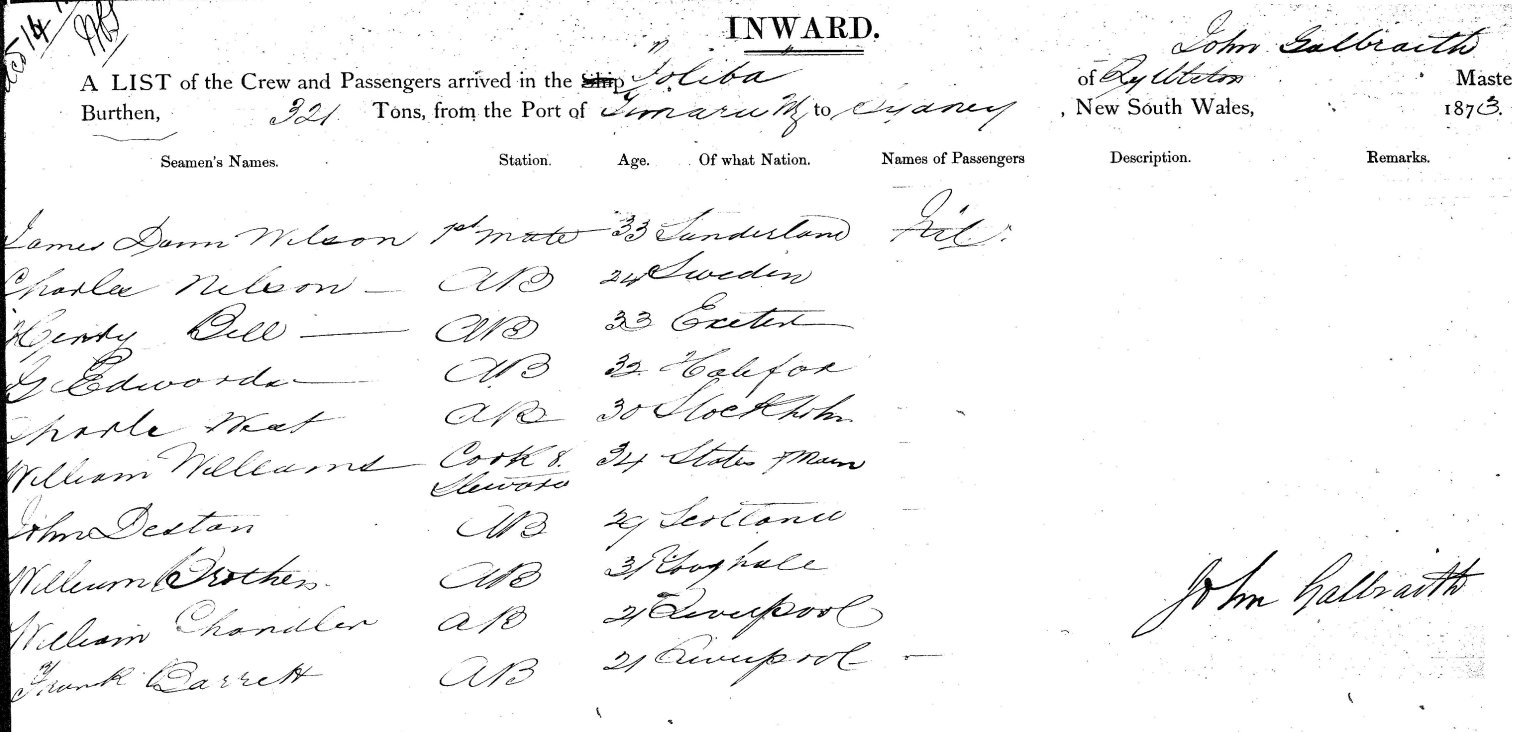 INWARD.
John Galbraith
A LIST of the Crew and Passengers arrived in the Ship Joliba of Maste
Burthen, 321 Tons, from the Port of Timaru NZ to Sydney, New South Wales, 1873.
Seamen's Names. Station. Age. Of what Nation. Names of Passengers Description. Remarks.
James Dann Wilson 1st Mate 33 Sunderland Nil.
Charles Nelson — AB 24 Sweden
Henry Bell — AB 33 Exeter
G Edwards — AB 32 Halifax
Charle West AB 30 Stockholm
William Williams Cook & 34 States Main
Steward
John Destan AB 29 Scotland
William Brothers AB 31
William Chandler AB 21 Liverpool
Frank Barrett AB 21 Liverpool —
John Galbraith